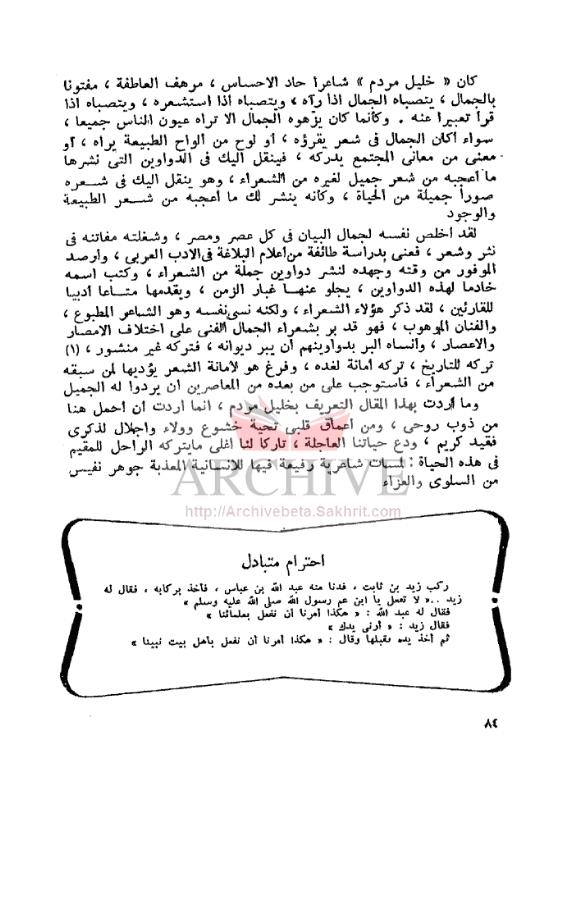 كان « خليل مردم » شاعرا حاد الاحساس ، مرهف العاطفة ، مفتونا
بالجمال ، يتصباه الجمال اذا رآه ، ويتصباه اذا استشعره ، ويتصباه اذا
قرأ تعبيرا عنه . وكأنما كان يزهوه الجمال الا تراه عيون الناس جميعا ،
سواء أكان الجمال في شعر يقرؤه ، أو لوح من الواح الطبيعة يراه ، أو
معنى من معانى المجتمع يدركه ، فينقل اليك فى الدواوين التى نشرها
ما أعجبه من شعر جميل لغيره من الشعراء ، وهو ينقل اليك فى شعره
صورا جميلة من الحياة ، وكأنه ينشر لك ما أعجبه من شعر الطبيعة
والوجود
لقد أخلص نفسه لجمال البيان فى كل عصر ومصر ، وشغلته مفاتنه فى
نثر وشعر ، فعنى بدراسة طائفة من أعلام البلاغة فى الادب العربى ، وأرصد
الموفور من وقته وجهده لنشر دواوين جملة من الشعراء ، وكتب اسمه
خادما لهذه الدواوين ، يجلو عنها غبار الزمن ، ويقدمها متاعا أدبيا
للقارئين ، لقد ذكر هؤلاء الشعراء ، ولكنه نسى نفسه وهو الشاعر المطبوع ،
والفنان الموهوب ، فهو قد بر بشعراء الجمال الفنى على اختلاف الامصار
والاعصار ، وأنساه البر بدواوينهم أن يبر ديوانه ، فتركه غير منشور ، (١)
تركه للتاريخ ، تركه أمانة لغده ، وفرغ هو لأمانة الشعر يؤديها لمن سبقه
من الشعراء ، فاستوجب على من بعده من المعاصرين أن يردوا له الجميل
وما أردت بهذا المقال التعريف بخليل مردم ، انما أردت أن أحمل هنا
من ذوب روحى ، ومن أعماق قلبى تحية خشوع وولاء واجلال لذكرى
فقيد كريم ، ودع حياتنا العاجلة ، تاركا لنا أغلى مايتركه الراحل للمقيم
فى هذه الحياة : لمسات شاعرية رفيعة فيها للانسانية المعذبة جوهر نفيس
من السلوى والعزاء
ARCHIVE
http://Archivebeta.Sakhrit.com
احترام متبادل
ركب زيد بن ثابت ، فدنا منه عبد الله بن عباس ، فأخذ بركابه ، فقال له
زيد ..« لا تفعل يا ابن عم رسول الله صلى الله عليه وسلم »
فقال له عبد الله : « هكذا أمرنا أن نفعل بعلمائنا »
فقال زيد : « أرنى يدك »
ثم أخذ يده فقبلها وقال : « هكذا أمرنا أن نفعل بأهل بيت نبينا »
٨٤